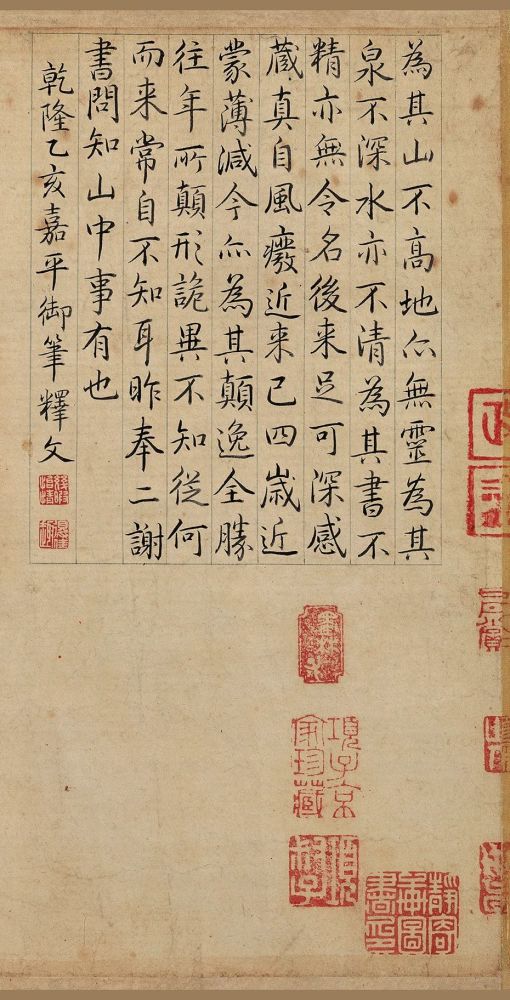 為其山不高地亦無靈為其
泉不深水亦不清為其書不
精亦無令名後来足可深感
藏真自風癈近来已四歲近
蒙薄減今亦為其顛逸全勝
往年所顛形詭異不知従何
而来常自不知耳昨奉二謝
書問知山中事有也
乾隆乙亥嘉平御筆釋文
項子京
家珍藏